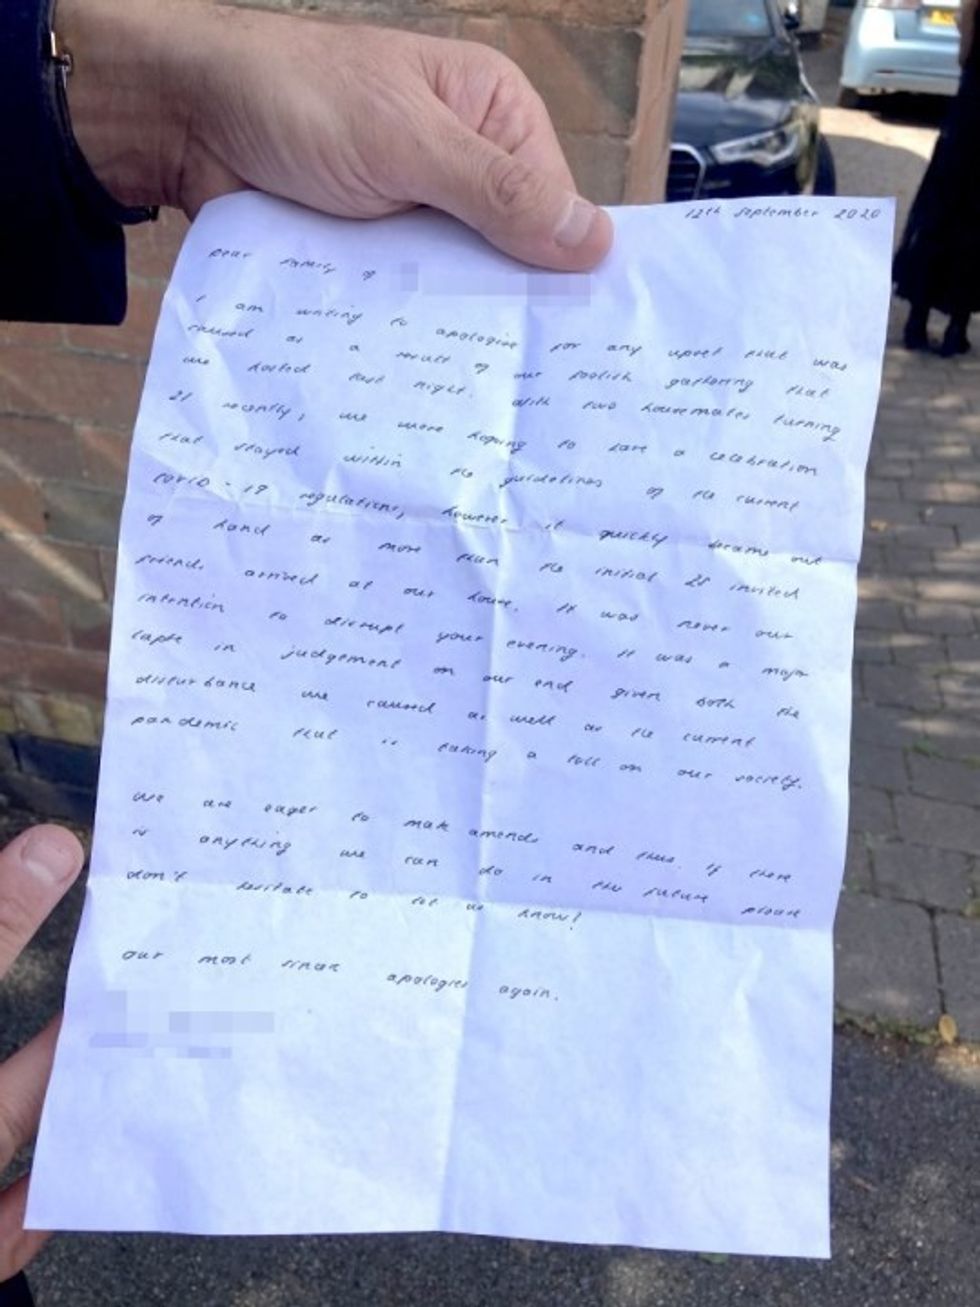 12th September 2020
Dear family of
I am writing to apologise for any upset that was
caused as a result of our foolish gathering that
we hosted last night. With two housemates turning
21 recently, we were hoping to have a celebration
that stayed within the guidelines of the current
COVID-19 regulations, however it quickly became out
of hand as more than the initial 25 invited
friends arrived at our house. It was never our
intention to disrupt your evening. It was a major
lapse in judgement on our end given both the
disturbance we caused as well as the current
pandemic that is taking a toll on our society.
We are eager to make amends and thus. If there
is anything we can do in the future please
don't hesitate to let us know!
Our most sincere apologies again.